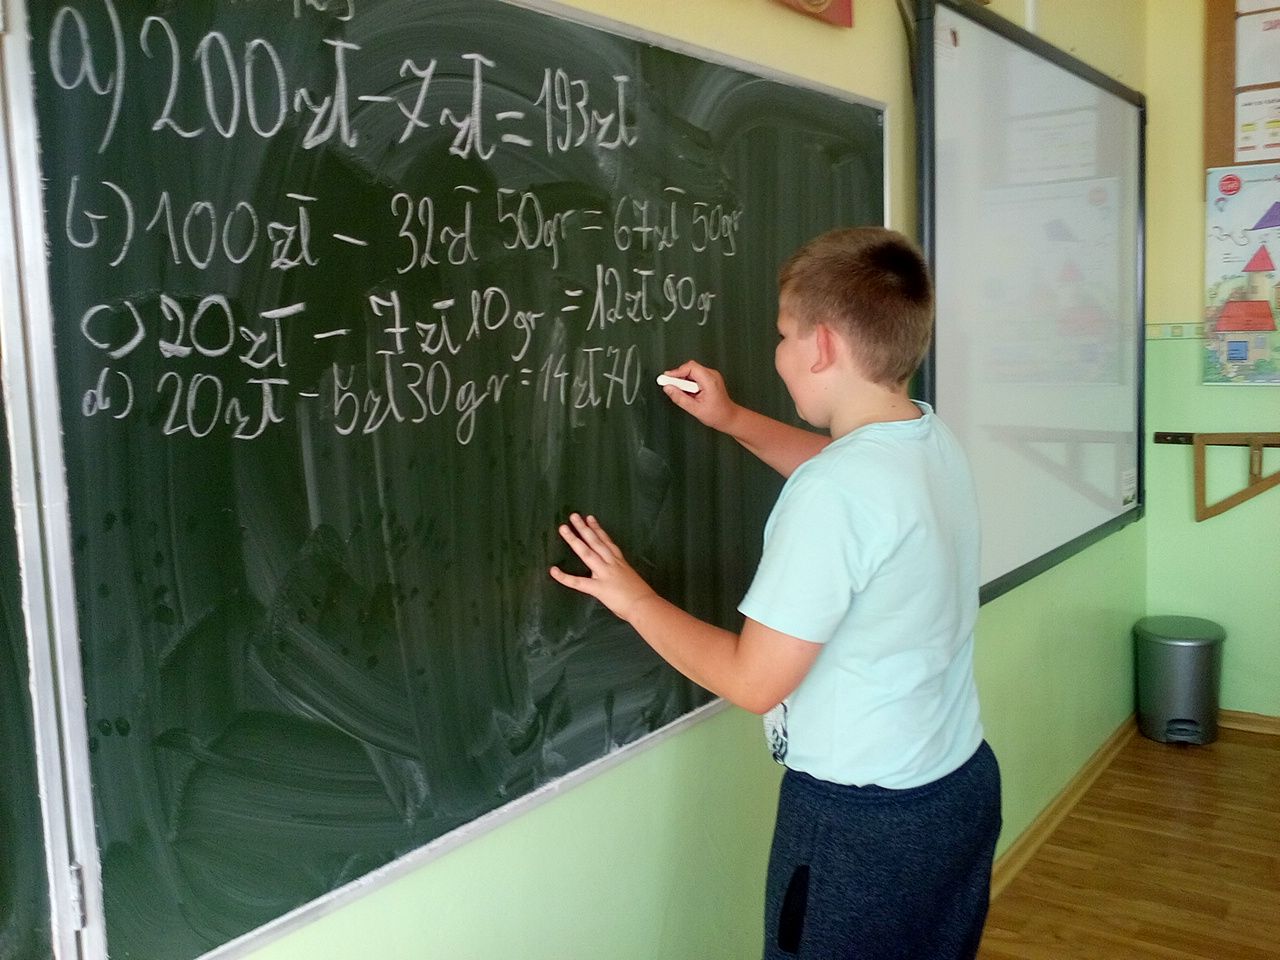 a) 200 zł - 7 zł = 193 zł
b) 100 zł - 32 zł 50 gr = 67 zł 50 gr
c) 20 zł - 7 zł 10 gr = 12 zł 90 gr
d) 20 zł - 5 zł 30 gr = 14 zł 70